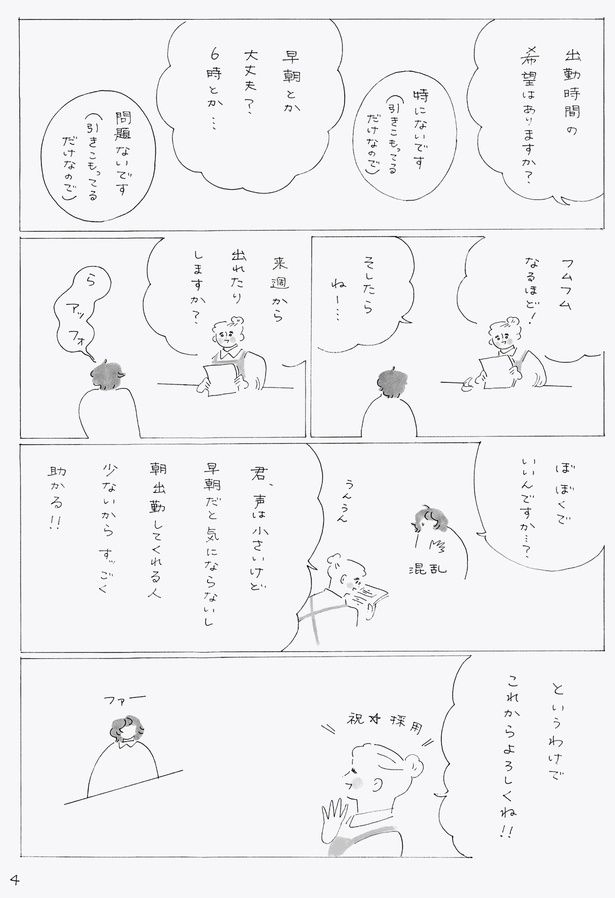 出勤時間の
希望はありますか?
特にないです
(引きこもってる
だけなので)
早朝とか
大丈夫?
6時とか…
問題ないです
(引きこもってる
だけなので)
フムフム
なるほど!
そしたら
ねー…
来週から
出れたり
しますか?
ら
アッ
フォ
ぼぼくで
いいんですか…?
混乱
うんうん
君、声は小さいけど
早朝だと気にならないし
朝出勤してくれる人
少ないからすッごく
助かる!!
というわけで
これからよろしくね!!
祝★採用
ファー
4